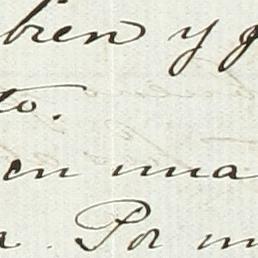 bien y
to.
en una
a. Por